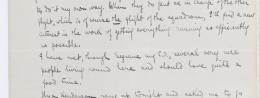 to do it my own way. When they do put me in charge of the other
flight, which is of course the flight of the squadron, I'll find a new
interest in the work of getting everything running as efficiently
as possible.
I have met, through Eugene my C.O., several very nice
people living round here and should have quite a
good time.
rang up tonight and asked me to go